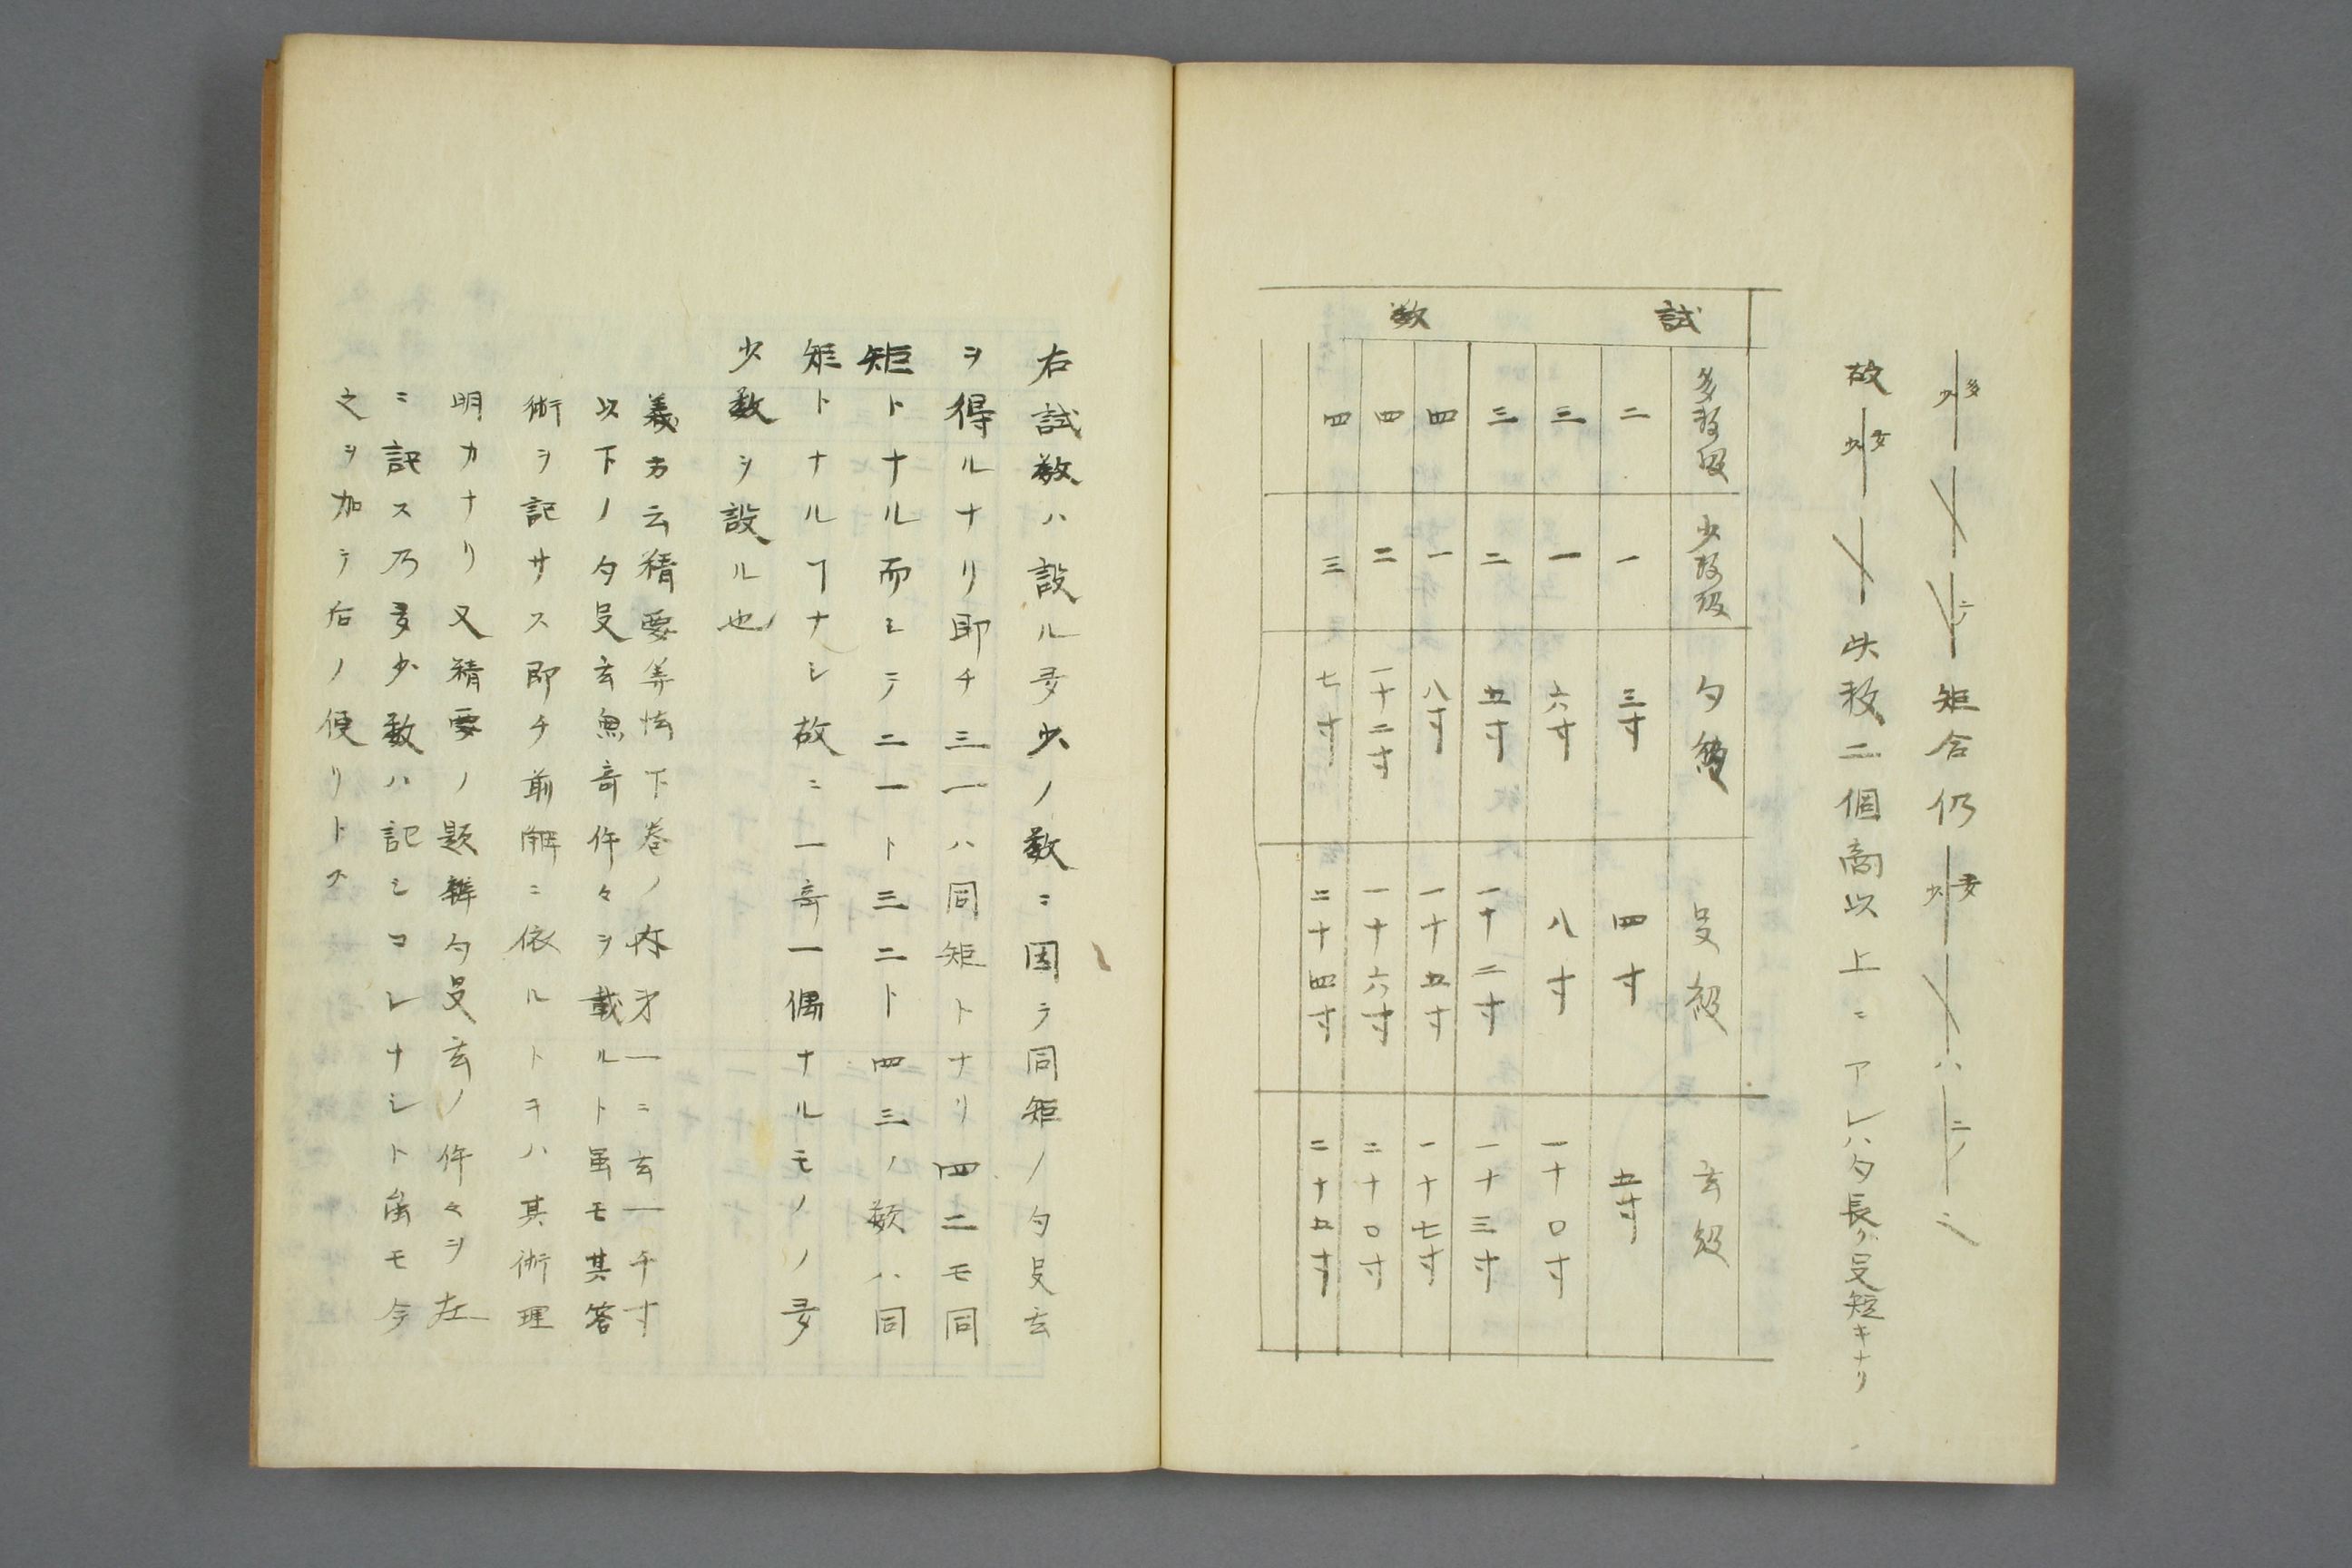 多 少 矩合仍 多 少 ハ ニ
故 多 少 此数二個商以上ニアレハ勾長ク𠯁短キナリ
試数
多数級 二 三 三 四 四 四
少数級 一 一 二 一 二 三
勾級 三寸 六寸 五寸 八寸 一十二寸 七寸
𠯁級 四寸 八寸 一十二寸 一十五寸 一十六寸 二十四寸
玄級 五寸 一十〇寸 一十三寸 一十七寸 二十〇寸 二十五寸
右試数ハ設ル多少ノ数ニ因テ同矩ノ勾𠯁玄
ヲ得ルナリ即チ三一ハ同矩トナリ四二モ同
矩トナル而シテ二一ト三二ト四三ノ類ハ同
矩トナルヿナシ故ニ一奇一偶ナルモノノ多
少数ヲ設ル也
義方云精要筭法下巻ノ内才一ニ玄一千寸
以下ノ勾𠯁玄無奇件々ヲ載ルト虽モ其答
術ヲ記サス即チ前解ニ依ルトキハ其術理
明カナリ又精要ノ題辞勾𠯁玄ノ件々ヲ左
ニ記ス乃多少数ハ記シコレナシト虽モ今
之ヲ加テ右ノ便リトス